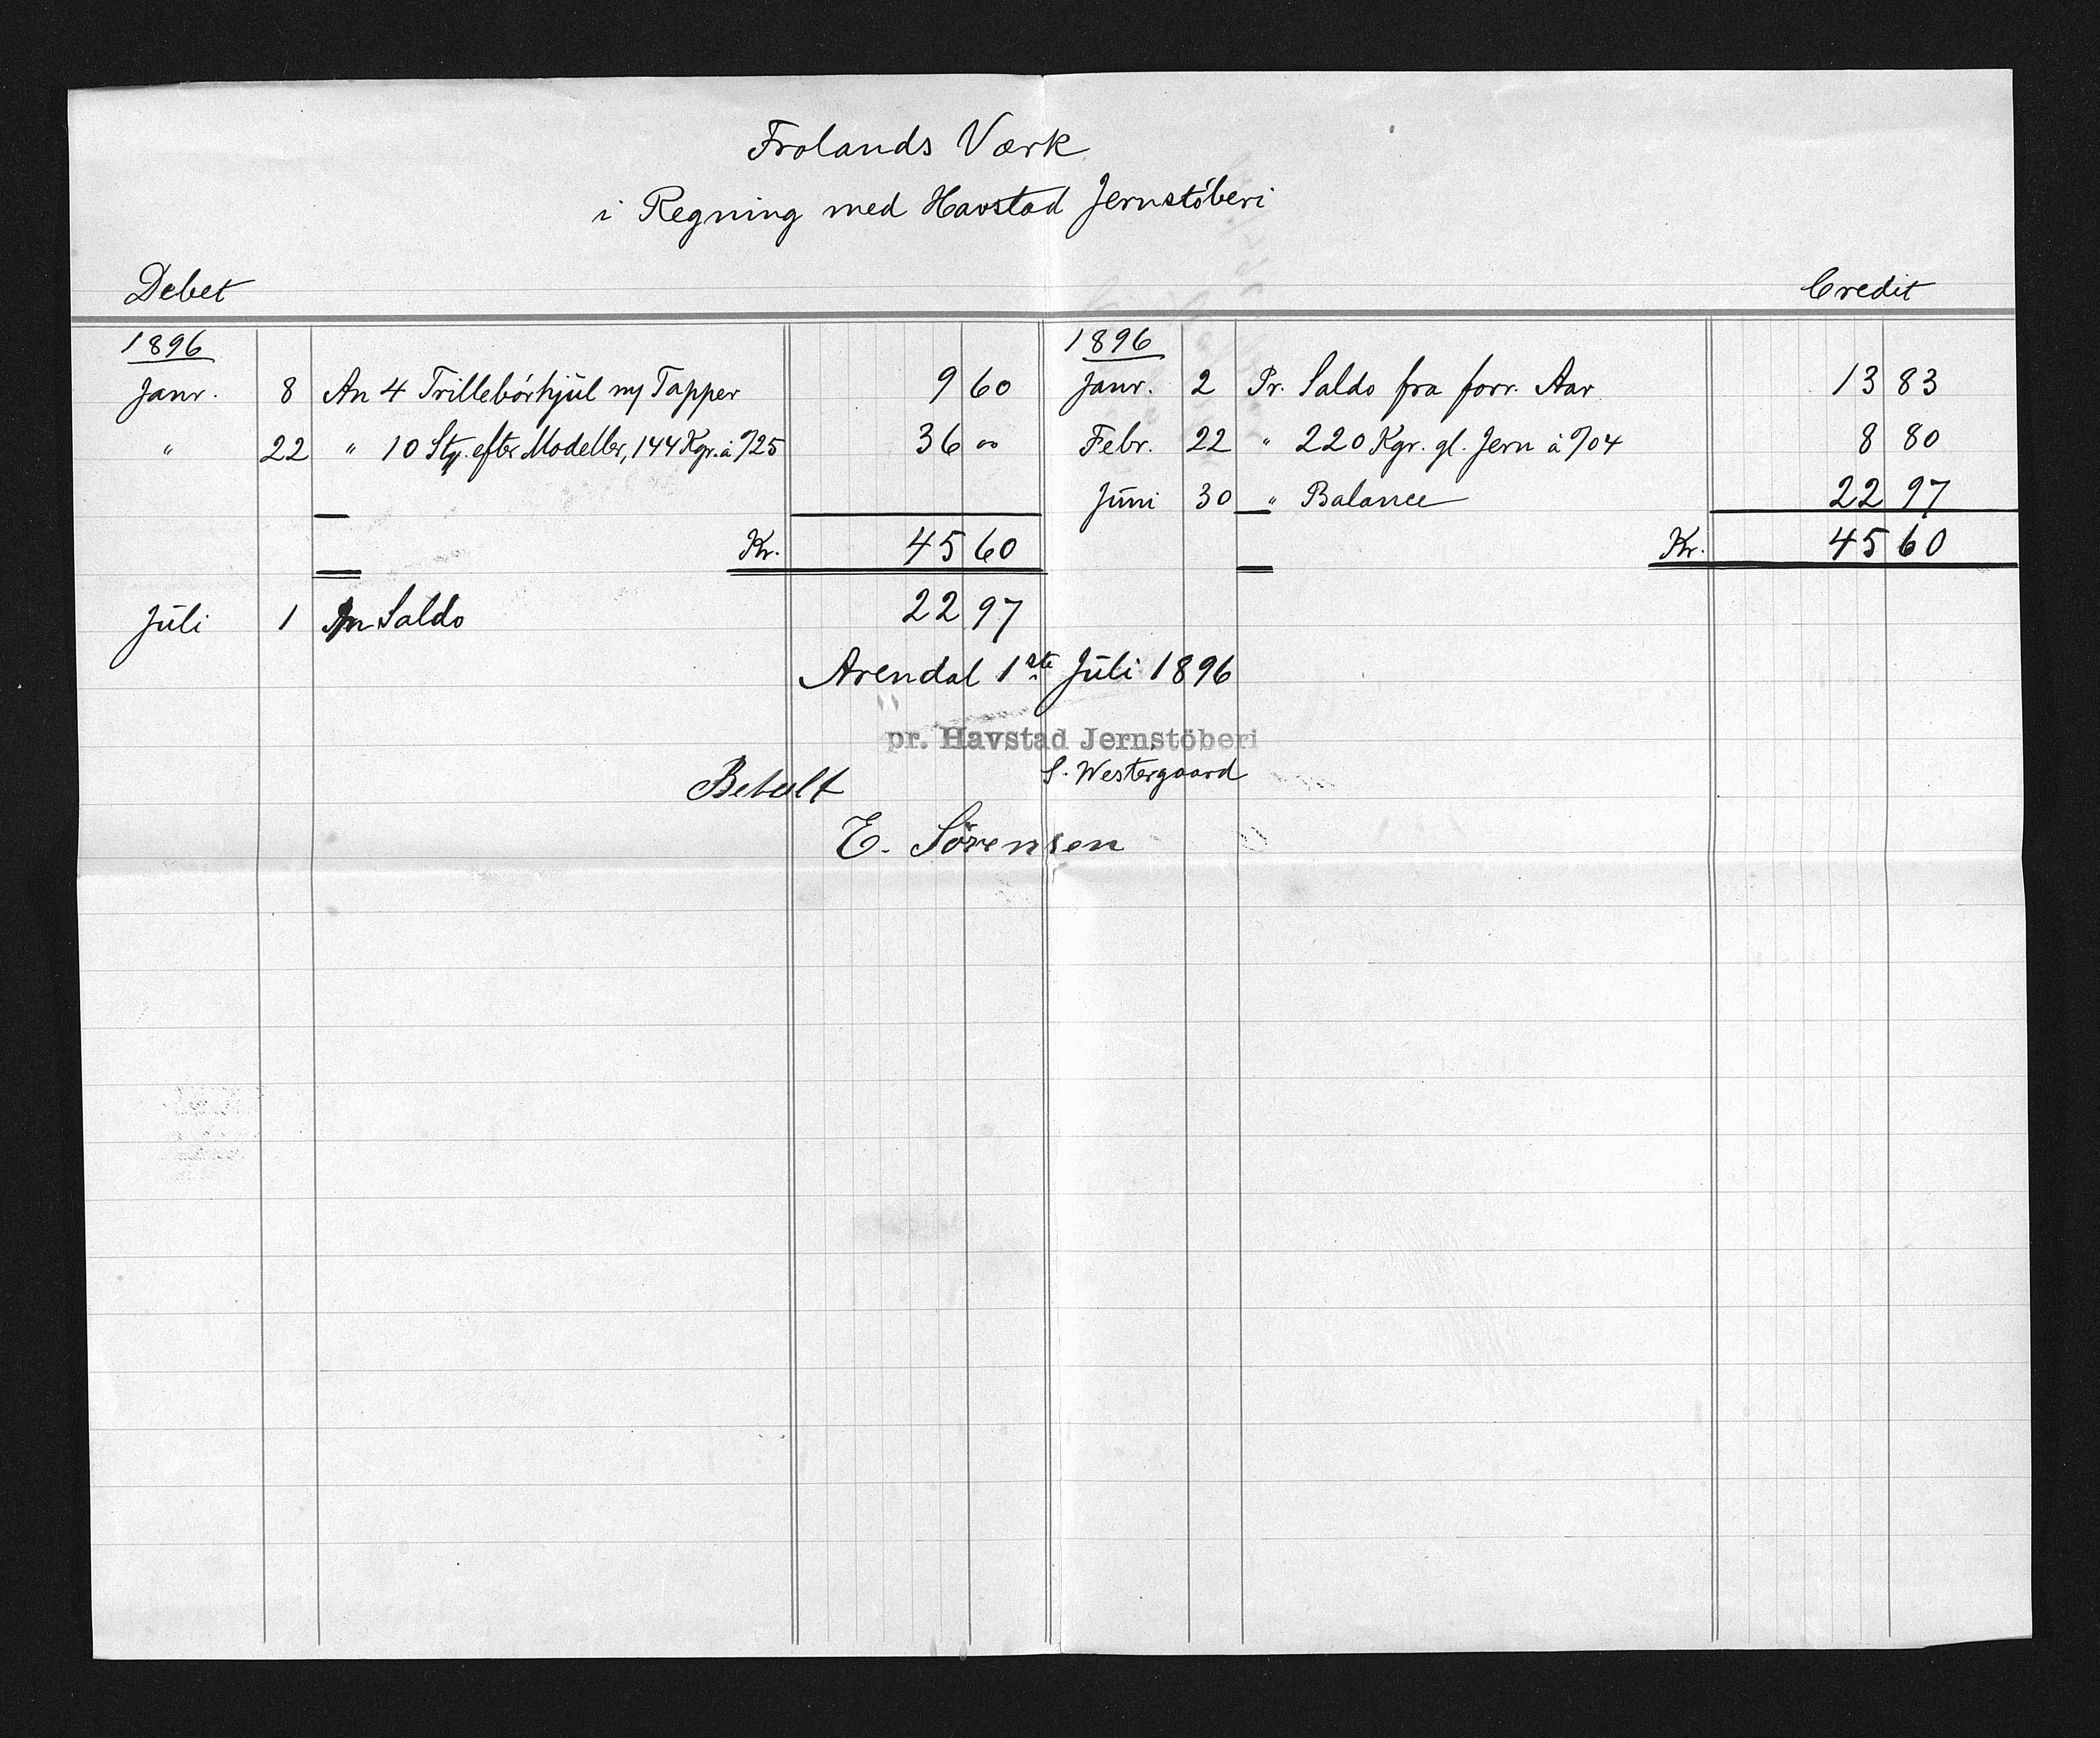 Frolands Værk
i Regning med Havstad Jernstöberi
Debet
Credit
1896
Janr. 8 An 4 Trillebörhjül m/ Tapper 9 60
" 22 " 10 St. efter Modeller, 144 Kgr. à /25 36 00
Kr. 45 60
Jüli 1 An Saldo 22 97
1896
Janr. 2 Pr. Saldo fra forr. Aar 13 83
Febr. 22 " 220 Kgr. gl. Jern à /04 8 80
Jüni 30 " Balance 22 97
Kr. 45 60
Arendal 1ste Jüli 1896
pr. Havstad Jernstöberi
S. Westergaard
Betalt
E. Sörensen